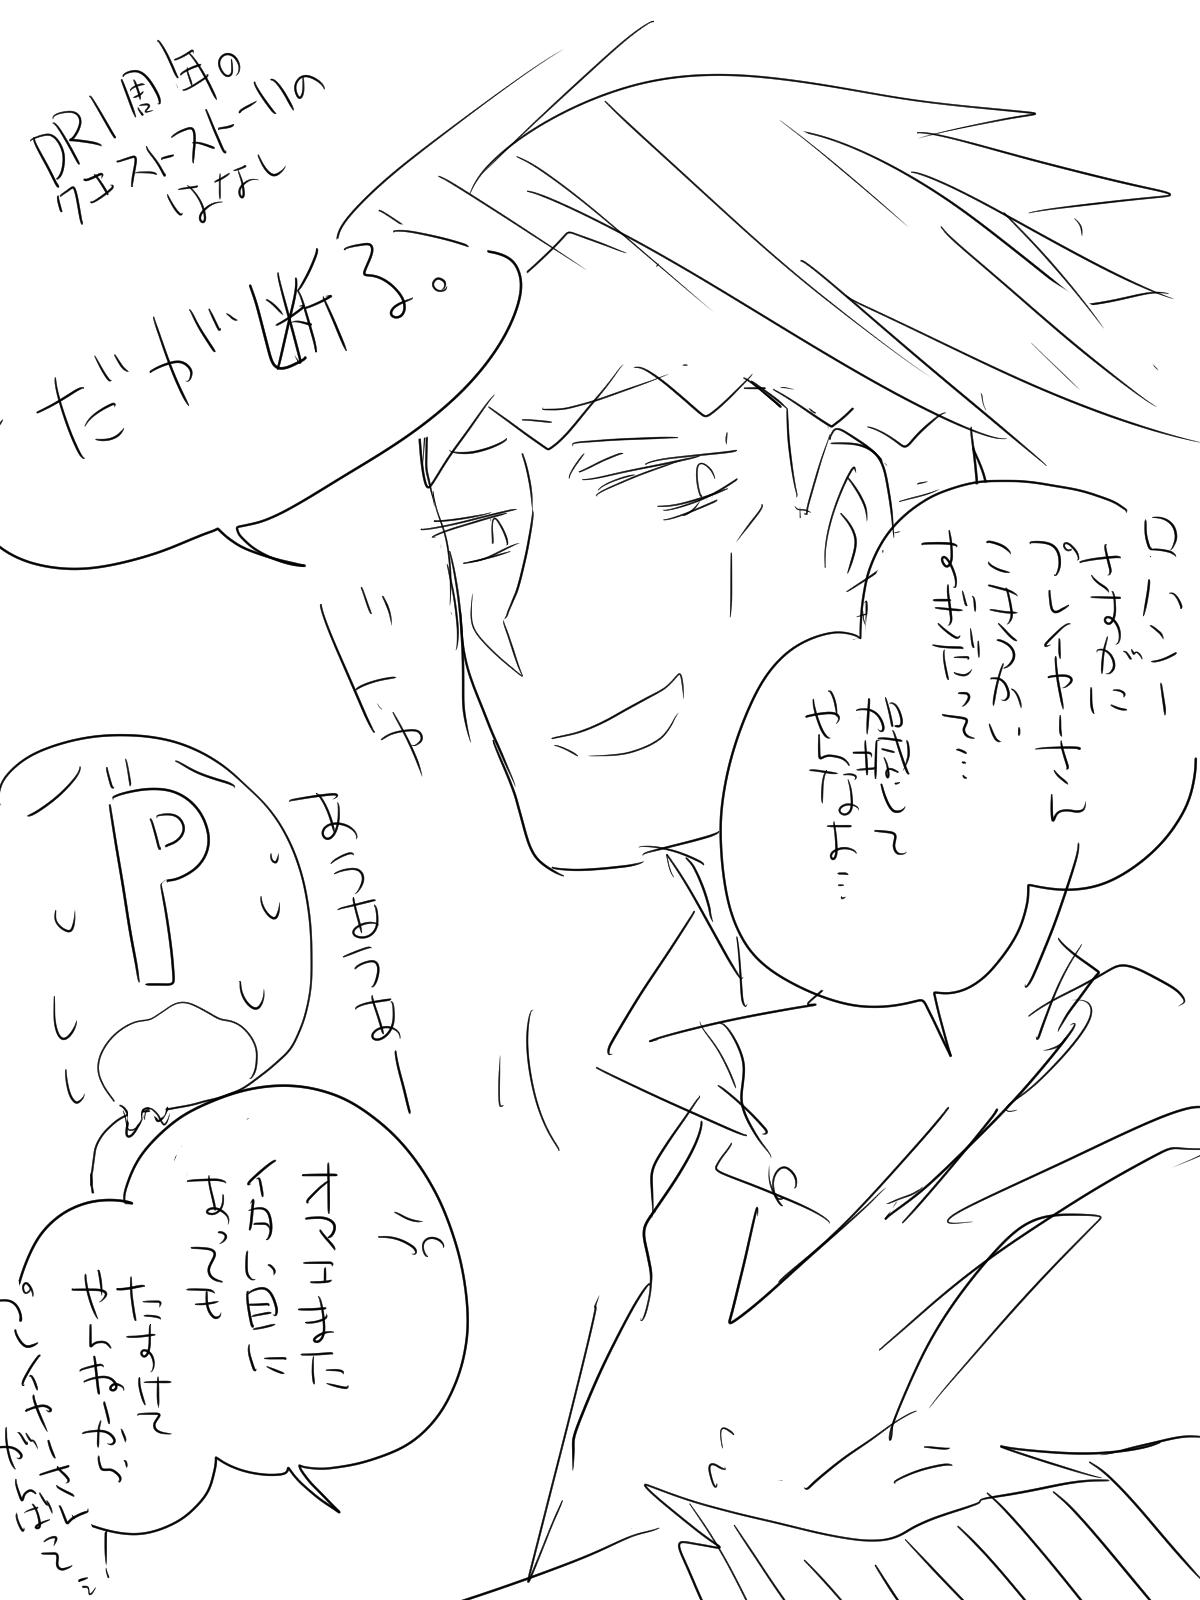 DR1周年の
クエストストーリーの
はなし
だが断る。
ロハンー
さすがに
プレイヤーさん
こきつかい
すぎだって…
加減して
やんなよ…
ドヤ
P
あうあうあー
オマエまた
イタい目に
あっても
たすけて
やんねーから
プレイヤーさん
がんばって…!